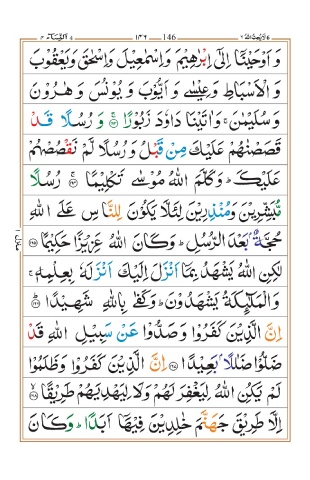 ١٤٦ 146
وَاَوْحَيْنَآ اِلٰٓى اِبْرٰهِيْمَ وَاِسْمٰعِيْلَ وَاِسْحٰقَ وَيَعْقُوْبَ
وَالْاَسْبَاطِ وَعِيْسٰى وَاَيُّوْبَ وَيُوْنُسَ وَهٰرُوْنَ
وَسُلَيْمٰنَ ۚ وَاٰتَيْنَا دَاوٗدَ زَبُوْرًا ﴿۱۶۳﴾ۚ وَرُسُلًا قَدْ
قَصَصْنٰهُمْ عَلَيْكَ مِنْ قَبْلُ وَرُسُلًا لَّمْ نَقْصُصْهُمْ
عَلَيْكَ ؕ وَكَلَّمَ اللّٰهُ مُوْسٰى تَكْلِيْمًا ﴿۱۶۴﴾ۚ رُسُلًا
مُّبَشِّرِيْنَ وَمُنْذِرِيْنَ لِئَلَّا يَكُوْنَ لِلنَّاسِ عَلَى اللّٰهِ
حُجَّةٌۢ بَعْدَ الرُّسُلِ ؕ وَكَانَ اللّٰهُ عَزِيْزًا حَكِيْمًا ﴿۱۶۵﴾
لٰكِنِ اللّٰهُ يَشْهَدُ بِمَآ اَنْزَلَ اِلَيْكَ اَنْزَلَهٗ بِعِلْمِهٖ ۚ
وَالْمَلٰٓئِكَةُ يَشْهَدُوْنَ ؕ وَكَفٰى بِاللّٰهِ شَهِيْدًا ﴿۱۶۶﴾ؕ
اِنَّ الَّذِيْنَ كَفَرُوْا وَصَدُّوْا عَنْ سَبِيْلِ اللّٰهِ قَدْ
ضَلُّوْا ضَلٰلًۢا بَعِيْدًا ﴿۱۶۷﴾ اِنَّ الَّذِيْنَ كَفَرُوْا وَظَلَمُوْا
لَمْ يَكُنِ اللّٰهُ لِيَغْفِرَ لَهُمْ وَلَا لِيَهْدِيَهُمْ طَرِيْقًا ﴿۱۶۸﴾ۙ
اِلَّا طَرِيْقَ جَهَنَّمَ خٰلِدِيْنَ فِيْهَآ اَبَدًا ؕ وَكَانَ